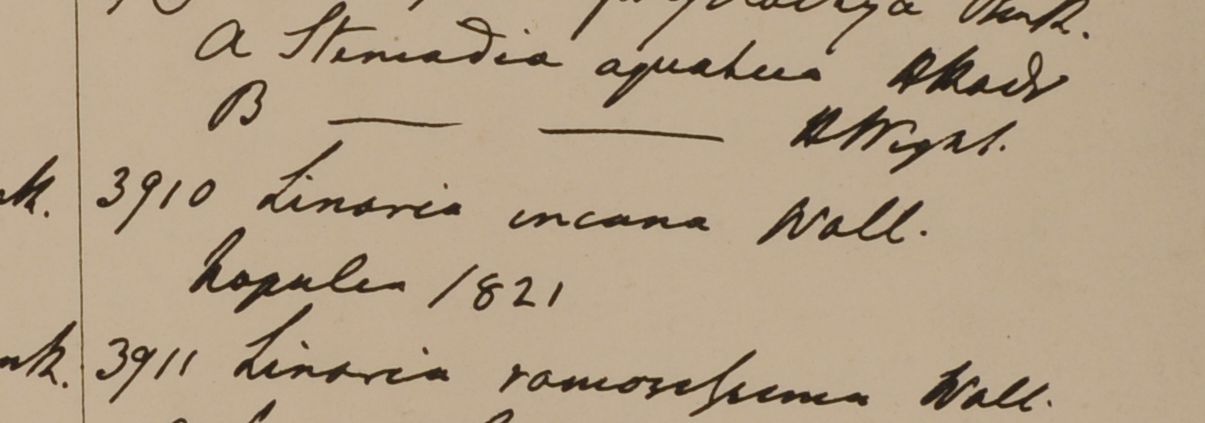 Benth.
A Stemodia aquatica H Madr
B — — H Wight.
3910 Linaria incana Wall.
Napalia 1821
3911 Linaria ramosissima Wall.